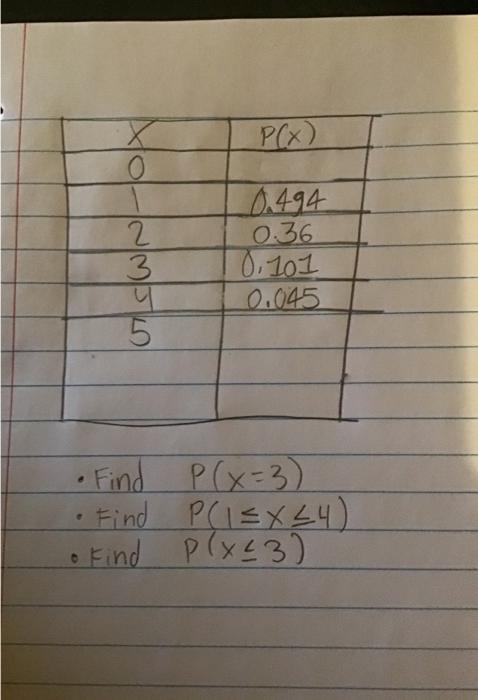 X P(x)
0
1 0.494
2 0.36
3 0.101
4 0.045
5
• Find P(x=3)
• Find P(1≤x≤4)
• Find P(x≤3)